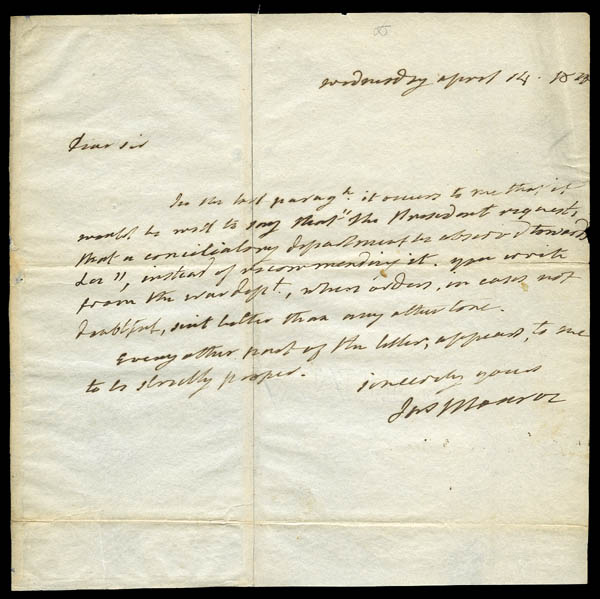 Wednesday april 14. 18
Dear Sir
In the last paragh. it occurs to me that it
would be well to say that "the President requests,
that a conciliatory department be observed towards
", instead of recommending it. you write
from the war dept., where orders, in cases not
doubtful, suit better than any other tone.
Every other part of the letter, appears, to me
to be strictly proper.
sincerely yours
Jas Monroe